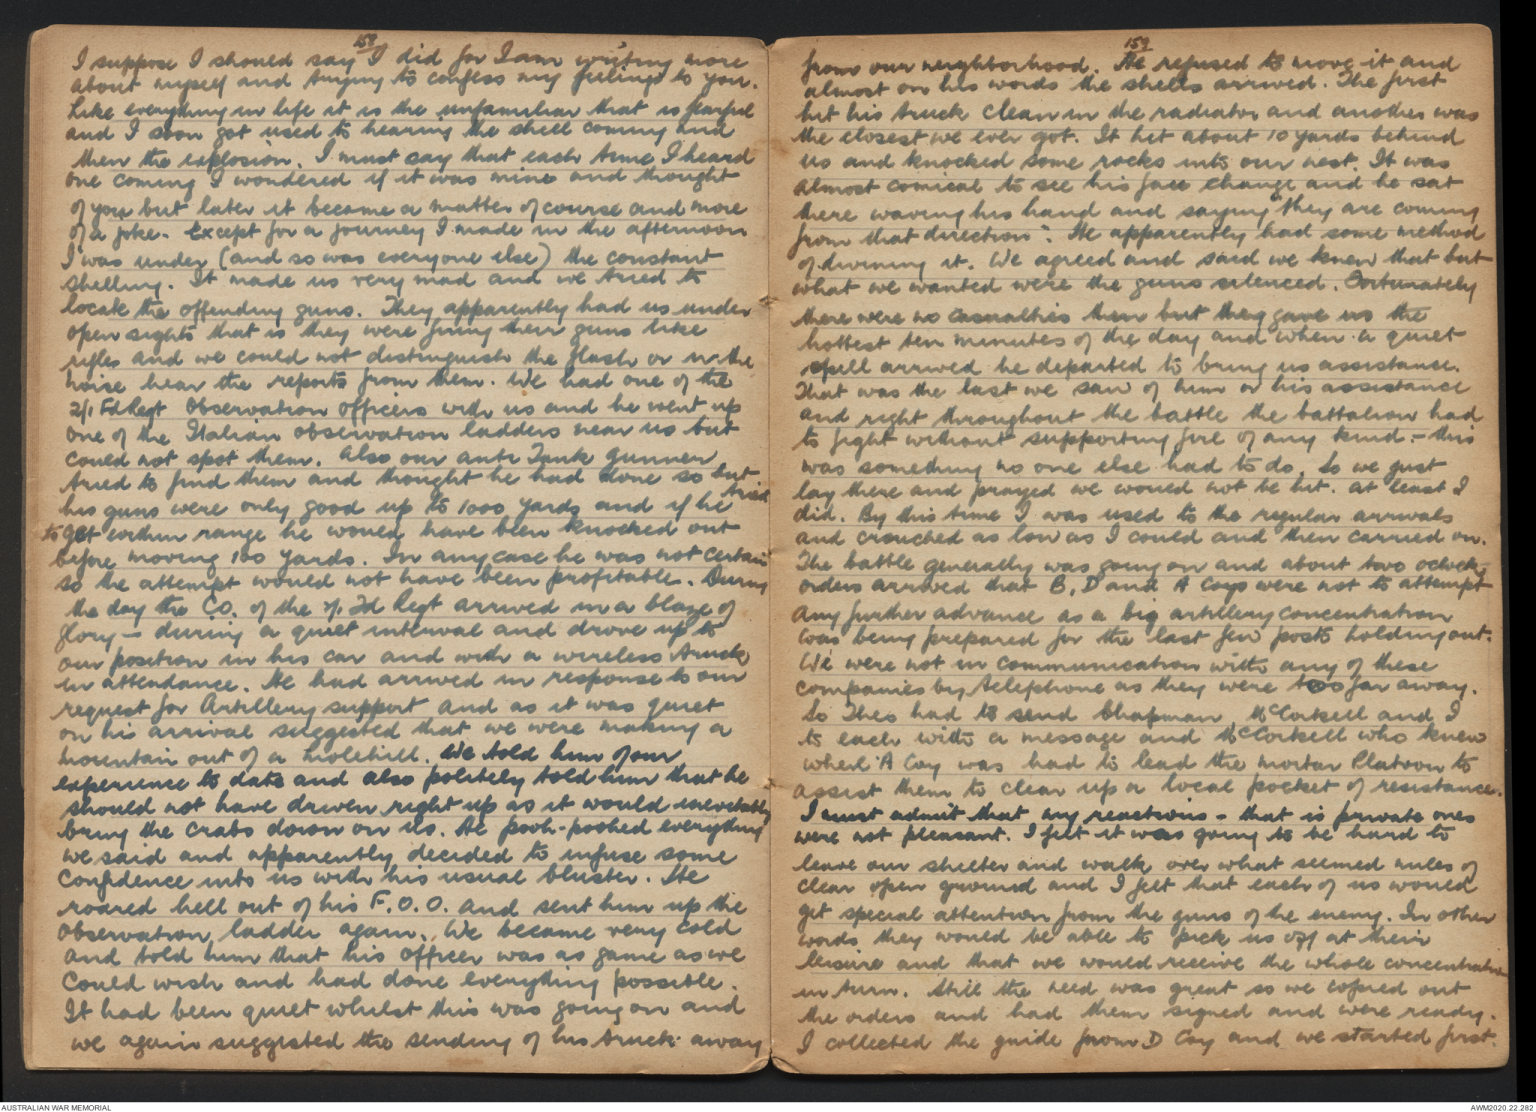 158
I suppose I should say I did for I am writing more
about myself and trying to confess my feelings to you.
Like everything in life it is the unfamiliar that is fearful
and I soon got used to hearing the shell coming and
then the explosion. I must say that each time I heard
one coming I wondered if it was mine and thought
of you but later it became a matter of course and more
of a joke. Except for a journey I made in the afternoon
I was under (and so was everyone else) the constant
shelling. It made us very mad and we tried to
locate the offending guns. They apparently had us under
open sights that is they were firing their guns like
rifles and we could not distinguish the flash or in the
noise hear the reports from them. We had one of the
2/1 Fd Regt Observation officers with us and he went up
one of the Italian observation ladders near us but
could not spot them. Also our anti Tank gunner
tried to find them and thought he had done so but
his guns were only good up to 1000 yards and if he tried
to get within range he would have been knocked out
before moving 100 yards. In any case he was not certain
so the attempt would not have been profitable. During
the day the C.O. of the 2/1 Fd Regt arrived in a blaze of
glory - during a quiet interval and drove up to
our position in his car and with a wireless truck
in attendance. He had arrived in response to our
request for Artillery support and as it was quiet
on his arrival suggested that we were making a
mountain out of a molehill. We told him of our
experience to date and also politely told him that he
should not have driven right up as it would inevitably
bring the crabs down on us. He pooh-poohed everything
we said and apparently decided to infuse some
confidence into us with his usual bluster. He
roared hell out of his F.O.O. and sent him up the
observation ladder again. We became very cold
and told him that his officer was as game as we
could wish and had done everything possible.
It had been quiet whilst this was going on and
we again suggested the sending of his truck away
159
from our neighborhood. He refused to move it and
almost on his words the shells arrived. The first
hit his truck clean in the radiator and another was
the closest we ever got. It hit about 10 yards behind
us and knocked some rocks into our nest. It was
almost comical to see his face change and he sat
there waving his hand and saying "they are coming
from that direction". He apparently had some method
of divining it. We agreed and said we knew that but
what we wanted were the guns silenced. Fortunately
there were no casualties then but they gave us the
hottest ten minutes of the day and when a quiet
spell arrived he departed to bring us assistance.
That was the last we saw of him or his assistance
and right throughout the battle the battalion had
to fight without supporting fire of any kind - this
was something no one else had to do. So we just
lay there and prayed we would not be hit. At least I
did. By this time I was used to the regular arrivals
and crouched as low as I could and then carried on.
The battle generally was going on and about two oclock
orders arrived that B, D and A Coys were not to attempt
any further advance as a big artillery concentration
was being prepared for the last few posts holding out.
We were not in communication with any of these
companies by telephone as they were too far away.
So Theo had to send Chapman, McCorkell and I
to each with a message and McCorkell who knew
where A Coy was had to lead the mortar Platoon to
assist them to clear up a local pocket of resistance.
I must admit that my reactions - that is private ones
were not pleasant. I felt it was going to be hard to
leave our shelter and walk over what seemed miles of
clear open ground and I felt that each of us would
get special attention from the guns of the enemy. In other
words they would be able to pick us off at their
leisure and that we would receive the whole concentration
in turn. Still the need was great so we copied out
the orders and had them signed and were ready.
I collected the guide from D Coy and we started first.
AUSTRALIAN WAR MEMORIAL
AWM2020.22.282